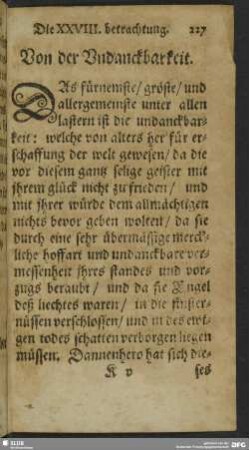 Die XXVIII. betrachtung. 227
Von der Vndanckbarkeit.
DAs fürnemste/ gröste/ und
allergemeinste unter allen
lastern ist die undanckbar-
keit: welche von alters her für er-
schaffung der welt gewesen/ da die
vor diesem gantz selige geister mit
jhrem glück nicht zu frieden/ und
mit jhrer würde dem allmächtigen
nichts bevor geben wolten/ da sie
durch eine sehr übermässige merck-
liche hoffart und undanckbare ver-
messenheit jhres standes und vor-
zugs beraubt/ und da sie Engel
deß liechtes waren/ in die finster-
nüssen verschlossen/ und in des ewi-
gen todes schatten verborgen liegen
müssen. Dannenhero hat sich die-
K v ses
SLUB